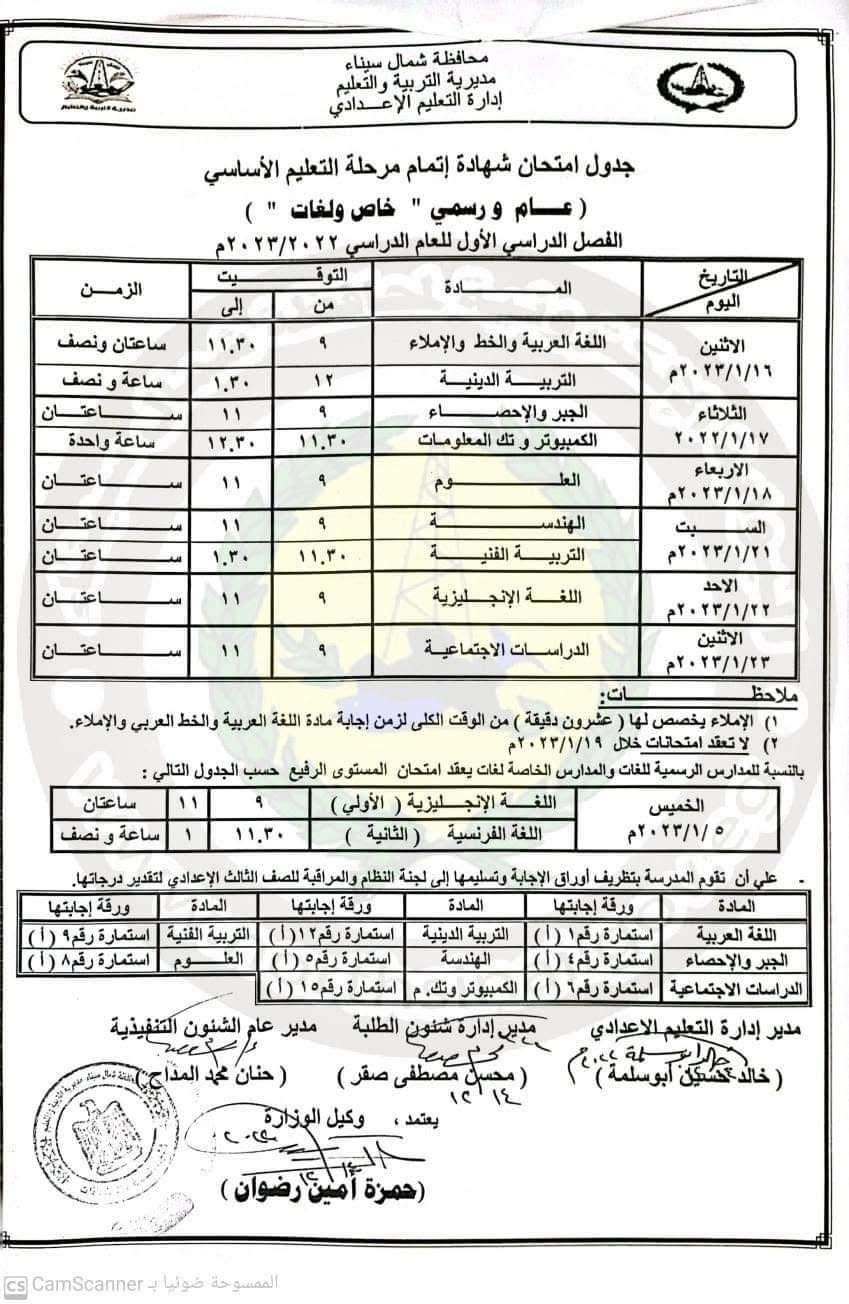 محافظة شمال سيناء
مديرية التربية والتعليم
إدارة التعليم الإعدادي
جدول امتحان شهادة إتمام مرحلة التعليم الأساسي
( عام و رسمي " خاص ولغات " )
الفصل الدراسي الأول للعام الدراسي ٢٠٢٣/٢٠٢٢م
التاريخ اليوم المادة التوقيت الزمن
من إلى
الاثنين ٢٠٢٣/١/١٦م اللغة العربية والخط والإملاء ٩ ١١.٣٠ ساعتان ونصف
التربية الدينية ١٢ ١.٣٠ ساعة و نصف
الثلاثاء ٢٠٢٢/١/١٧ الجبر والإحصاء ٩ ١١ ساعتان
الكمبيوتر و تك المعلومات ١١.٣٠ ١٢.٣٠ ساعة واحدة
الاربعاء ٢٠٢٣/١/١٨م العلوم ٩ ١١ ساعتان
السبت ٢٠٢٣/١/٢١م الهندسة ٩ ١١ ساعتان
التربية الفنية ١١.٣٠ ١.٣٠ ساعتان
الاحد ٢٠٢٣/١/٢٢م اللغة الإنجليزية ٩ ١١ ساعتان
الاثنين ٢٠٢٣/١/٢٣م الدراسات الاجتماعية ٩ ١١ ساعتان
ملاحظات:
١) الإملاء يخصص لها ( عشرون دقيقة ) من الوقت الكلى لزمن إجابة مادة اللغة العربية والخط العربي والإملاء.
٢) لا تعقد امتحانات خلال ٢٠٢٣/١/١٩م
بالنسبة للمدارس الرسمية للغات والمدارس الخاصة لغات يعقد امتحان المستوى الرفيع حسب الجدول التالي :
الخميس ٢٠٢٣/١/٥م اللغة الإنجليزية ( الأولي ) ٩ ١١ ساعتان
اللغة الفرنسية ( الثانية ) ١١.٣٠ ١ ساعة و نصف
- علي أن تقوم المدرسة بتظريف أوراق الإجابة وتسليمها إلى لجنة النظام والمراقبة للصف الثالث الإعدادي لتقدير درجاتها.
المادة ورقة إجابتها المادة ورقة إجابتها المادة ورقة إجابتها
اللغة العربية استمارة رقم١ (أ) التربية الدينية استمارة رقم١٢ (أ) التربية الفنية استمارة رقم٩ (أ)
الجبر والإحصاء استمارة رقم٤ (أ) الهندسة استمارة رقم٥ (أ) العلوم استمارة رقم٨ (أ)
الدراسات الاجتماعية استمارة رقم٦ (أ) الكمبيوتر وتك. م استمارة رقم١٥ (أ)
مدير إدارة التعليم الإعدادي مدير إدارة شئون الطلبة مدير عام الشئون التنفيذية
( خالد حسين أبوسلمة ) ( محسن مصطفى صقر ) ( حنان محمد المداح )
١٢/١٤
يعتمد ، وكيل الوزارة
(حمزة أمين رضوان )
CS CamScanner الممسوحة ضوئيا بـ